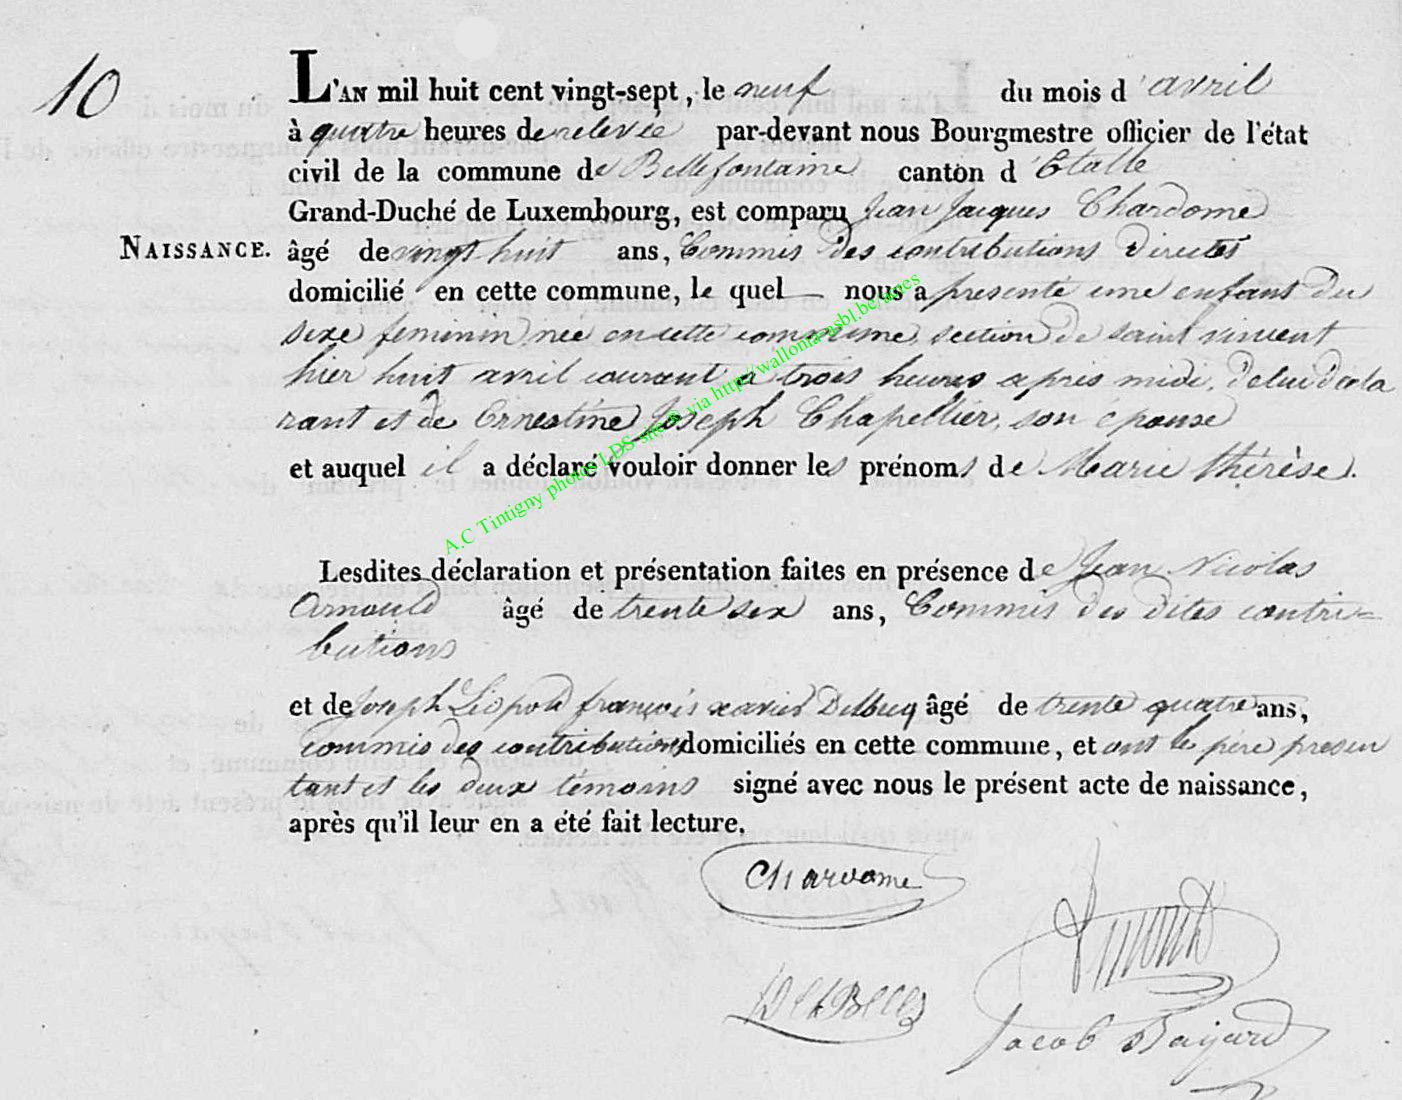 10
L'AN mil huit cent vingt-sept, le neuf du mois d'avril
à quatre heures de relevée par-devant nous Bourgmestre officier de l'état
civil de la commune de Bellefontaine canton d'Etalle
Grand-Duché de Luxembourg, est comparu Jean Jacques Chardome
NAISSANCE. âgé de vingt huit ans, Commis des contributions directes
domicilié en cette commune, le quel nous a presenté une enfant du
sexe feminin née en cette commune, section de saint vincent
hier huit avril courant à trois heures après midi, de lui decla
rant et de Ernestine Joseph Chapellier, son epouse
et auquel il a déclaré vouloir donner les prénoms de Marie thérèse.
Lesdites déclaration et présentation faites en présence de Jean Nicolas
Arnould âgé de trente six ans, Commis des dites contri=
butions
et de Joseph Léopold françois xavier Delbecq âgé de trente quatre ans,
commis des contributions domiciliés en cette commune, et ont le père presen
tant et les deux témoins signé avec nous le présent acte de naissance,
après qu'il leur en a été fait lecture.
Chardome
Arnould
Delbecq
Jacob Bayard
A.C Tintigny photos LDS-site via http://wallonia-asbl.be/actes